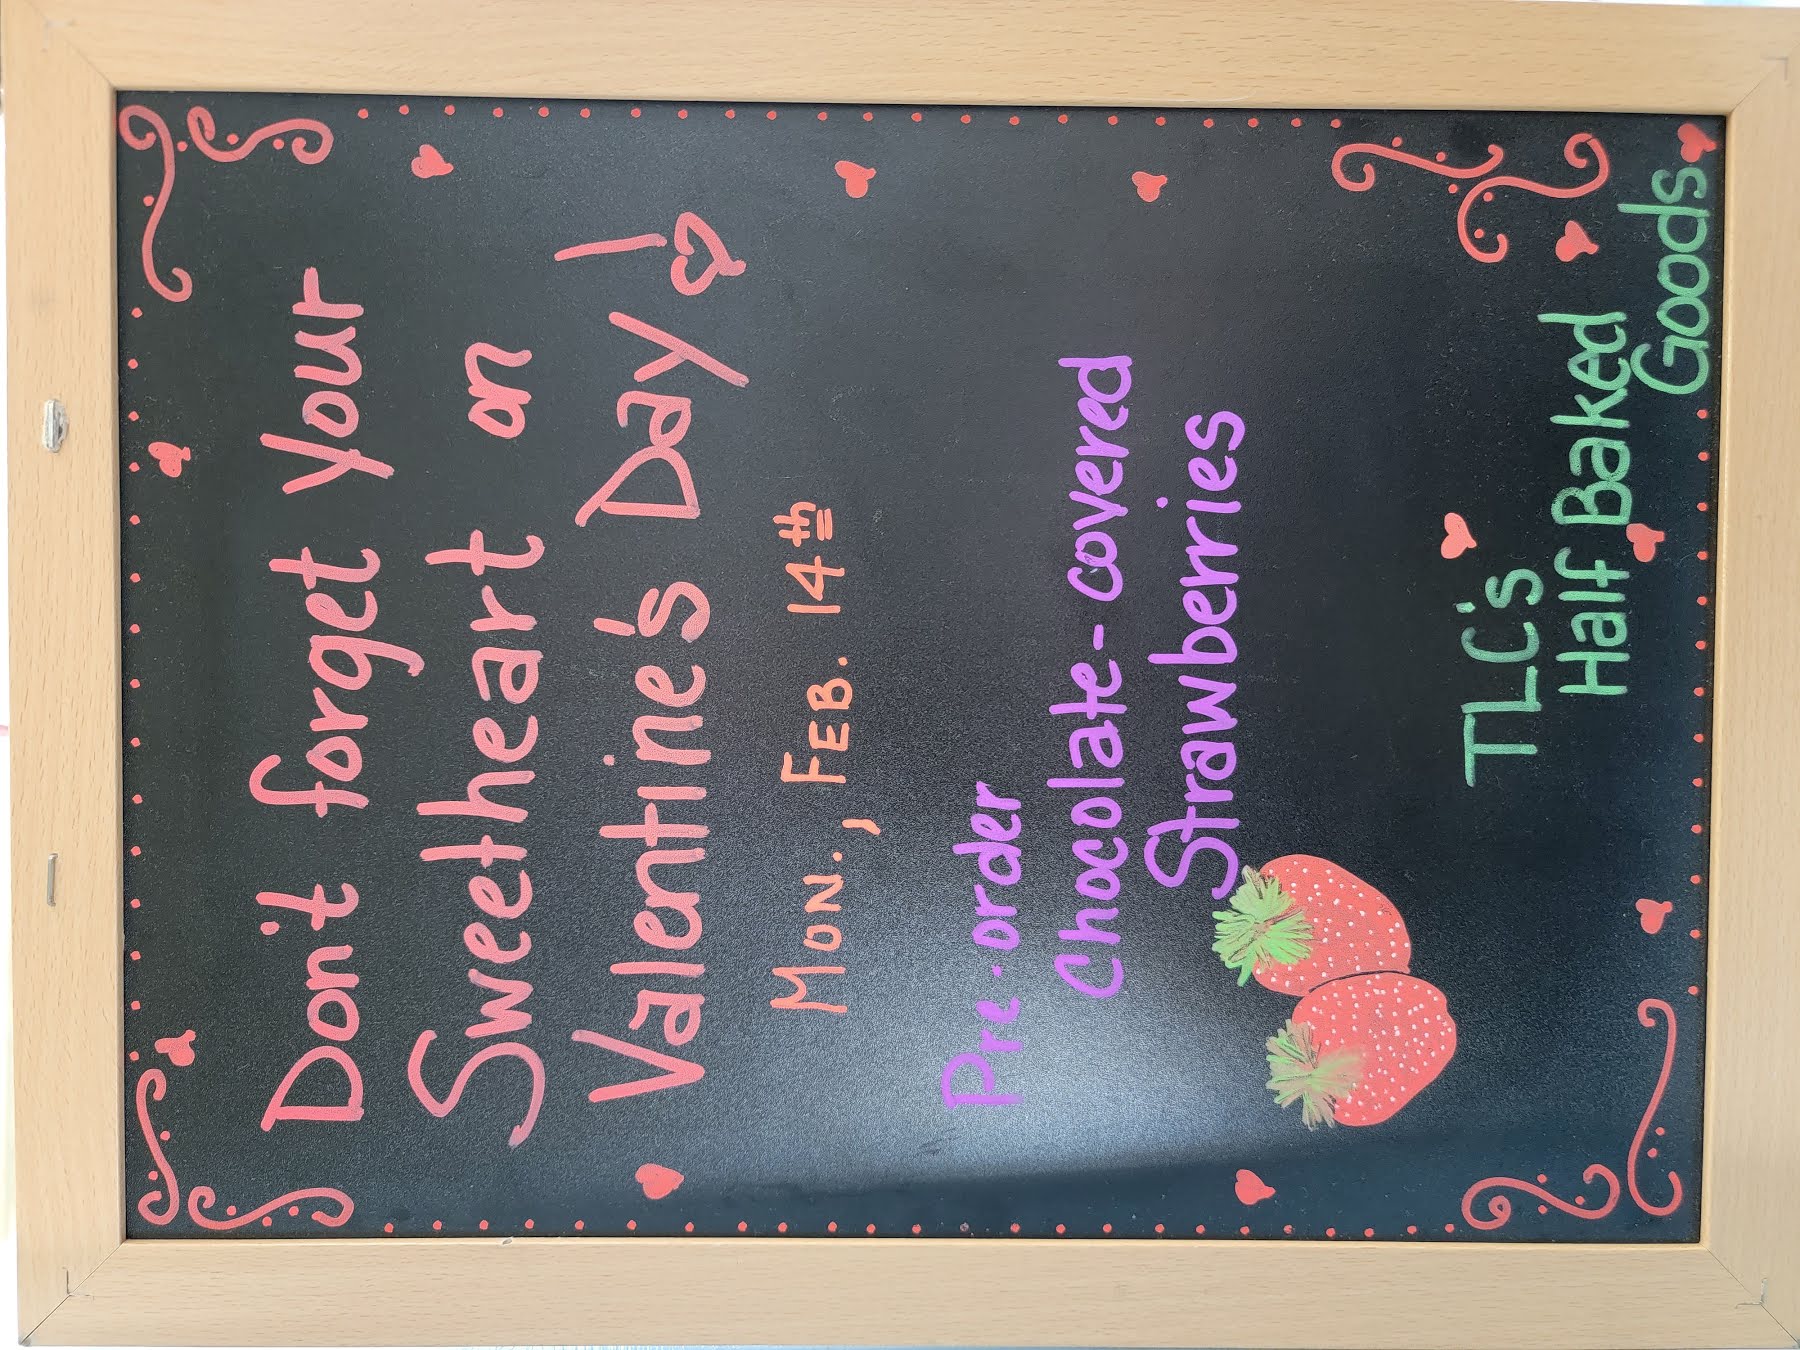 Don't forget your
Sweetheart on
Valentine's Day!
Mon., Feb. 14th
Pre-order
Chocolate-covered
Strawberries
TLC's
Half Baked
Goods